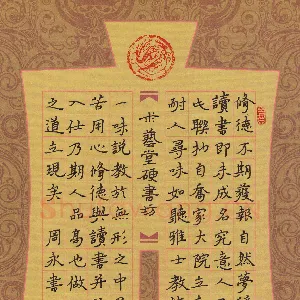 脩德不期獲報自然夢穩
讀書即未成名究意人
氏聨抄自喬家大院立
耐人尋味如聽雅士教
卡藝堂硬書坊
一味說教於無形之中
苦用心脩德與讀書并
入仕乃期人品高也做
之道立現矣 周永書